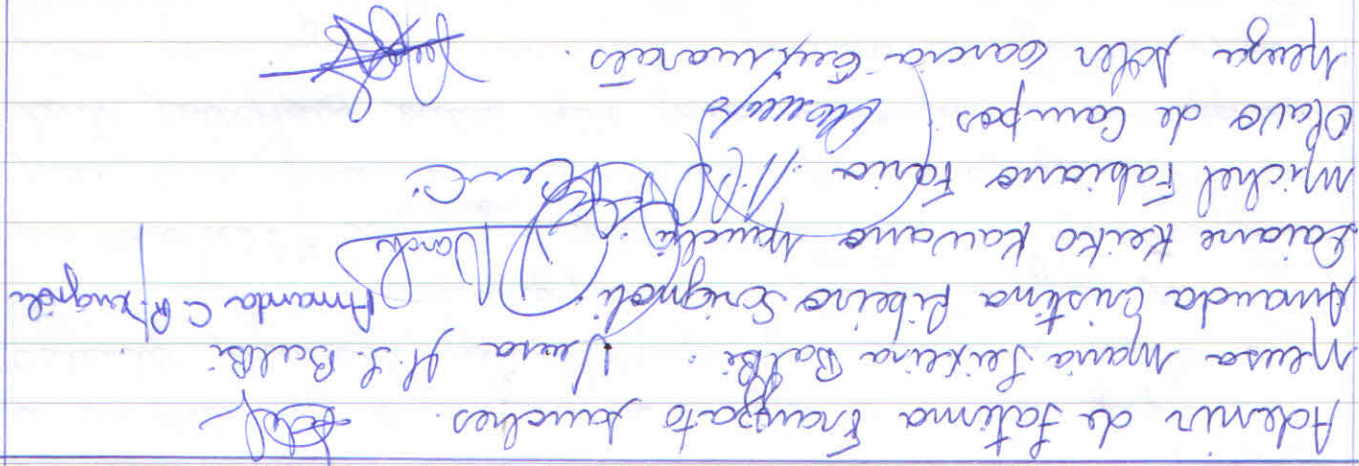 Ademir de Fatima Franzato Sanches.
Neusa Maria Teixeira Balbi: Neusa M. T. Balbi
Amanda Cristina Ribeiro Serignoli: Amanda C. R. Serignoli
Daiane Keiko Kawano
Michel Fabiano Faria
Olavo de Campos
Neuza Soler Garcia Guimarães.